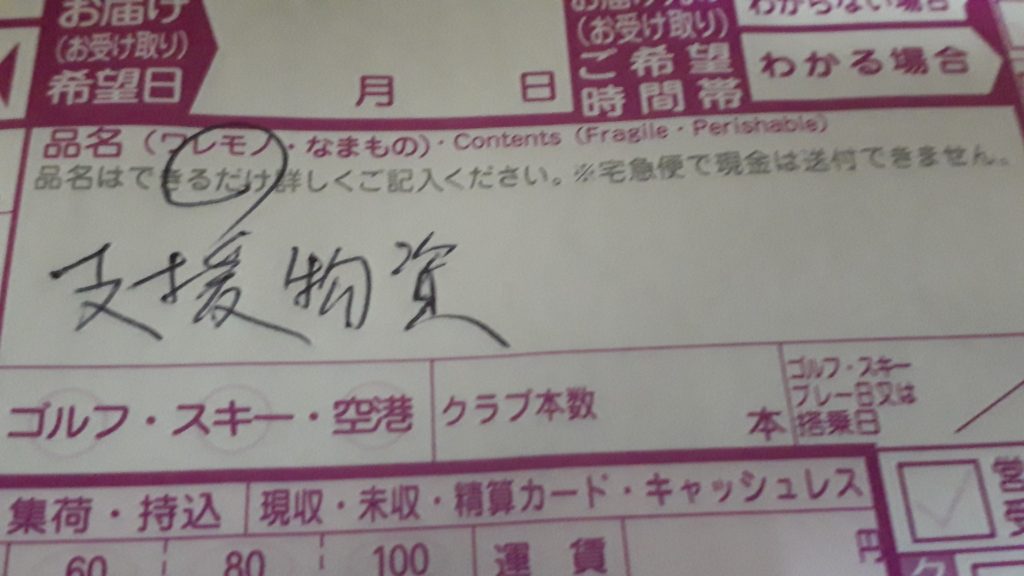 お届け
(お受け取り)
希望日
月 日
(お受け取り)
ご希望
時間帯
わからない場合
わかる場合
品名(ワレモノ・なまもの)・Contents (Fragile・Perishable)
品名はできるだけ詳しくご記入ください。※宅急便で現金は送付できません。
支援物資
ゴルフ・スキー・空港
クラブ本数
本
ゴルフ・スキー
プレー日又は
搭乗日
集荷・持込
現収・未収・精算カード・キャッシュレス
60 80 100
運賃
円